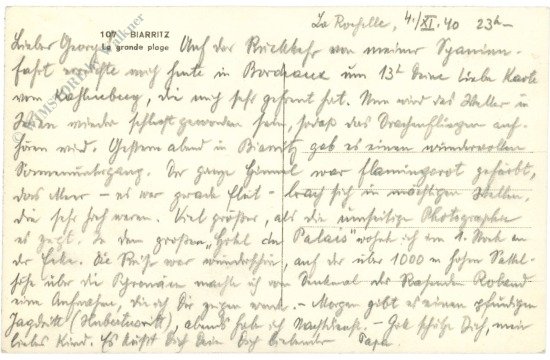 107 BIARRITZ
La grande plage
La Rochelle, 4./XI. 40 23h
Lieber Georg! Auf der Rückkehr von meiner Spanien-
fahrt erreichte mich heute in Bordeaux um 13h Deine liebe Karte
vom Kahlenberg, die mich sehr gefreut hat. Nun wird das Wetter in
Wien wieder schlecht geworden sein, sodaß das Drachenfliegen auf-
hören wird. Gestern abend in Biarritz gab es einen wundervollen
Sonnenuntergang. Der ganze Himmel war flamingorot gefärbt,
das Meer - es war gerade Flut - brach sich in mächtigen Wellen,
die sehr hoch waren. Viel größer, als die umseitige Photographie
es zeigt. In dem großen „Hotel du Palais" wohnte ich im 1. Stock an
der Ecke. Die Reise war wunderschön, auf der über 1000 m hohen Sattel-
höhe über die Pyrenäen machte ich vom Denkmal des Rasenden Roland
eine Aufnahme, die ich Dir zeigen werde. - Morgen gibt es einen pfundigen
Jagdritt (Hubertusritt), abends hab ich Nachtdienst. - Gott schütze Dich, mein
liebes Kind. Es küßt Dich Dein Dich liebender Papa.